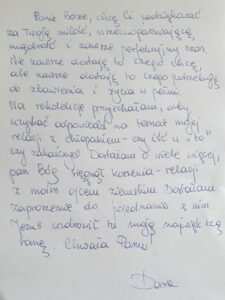 Panie Boże, chcę Ci podziękować
za Twoją miłość, wszechogarniającą
mądrość i zawsze perfekcyjny czas.
Nie zawsze dostaję to czego chcę,
ale zawsze dostaję to czego potrzebuję
do zbawienia i życia w pełni.
Na rekolekcje przyjechałam, aby
uzyskać odpowiedź na temat mojej
relacji z chłopakiem - czy iść w "to"
czy zakończyć. Dostałam o wiele więcej,
pan Bóg sięgnął korzenia - relacji
z moim ojcem ziemskim. Dostałam
zaproszenie do pojednania z nim.
Jezus uzdrowił tę moją największą
ranę. Chwała Panu!